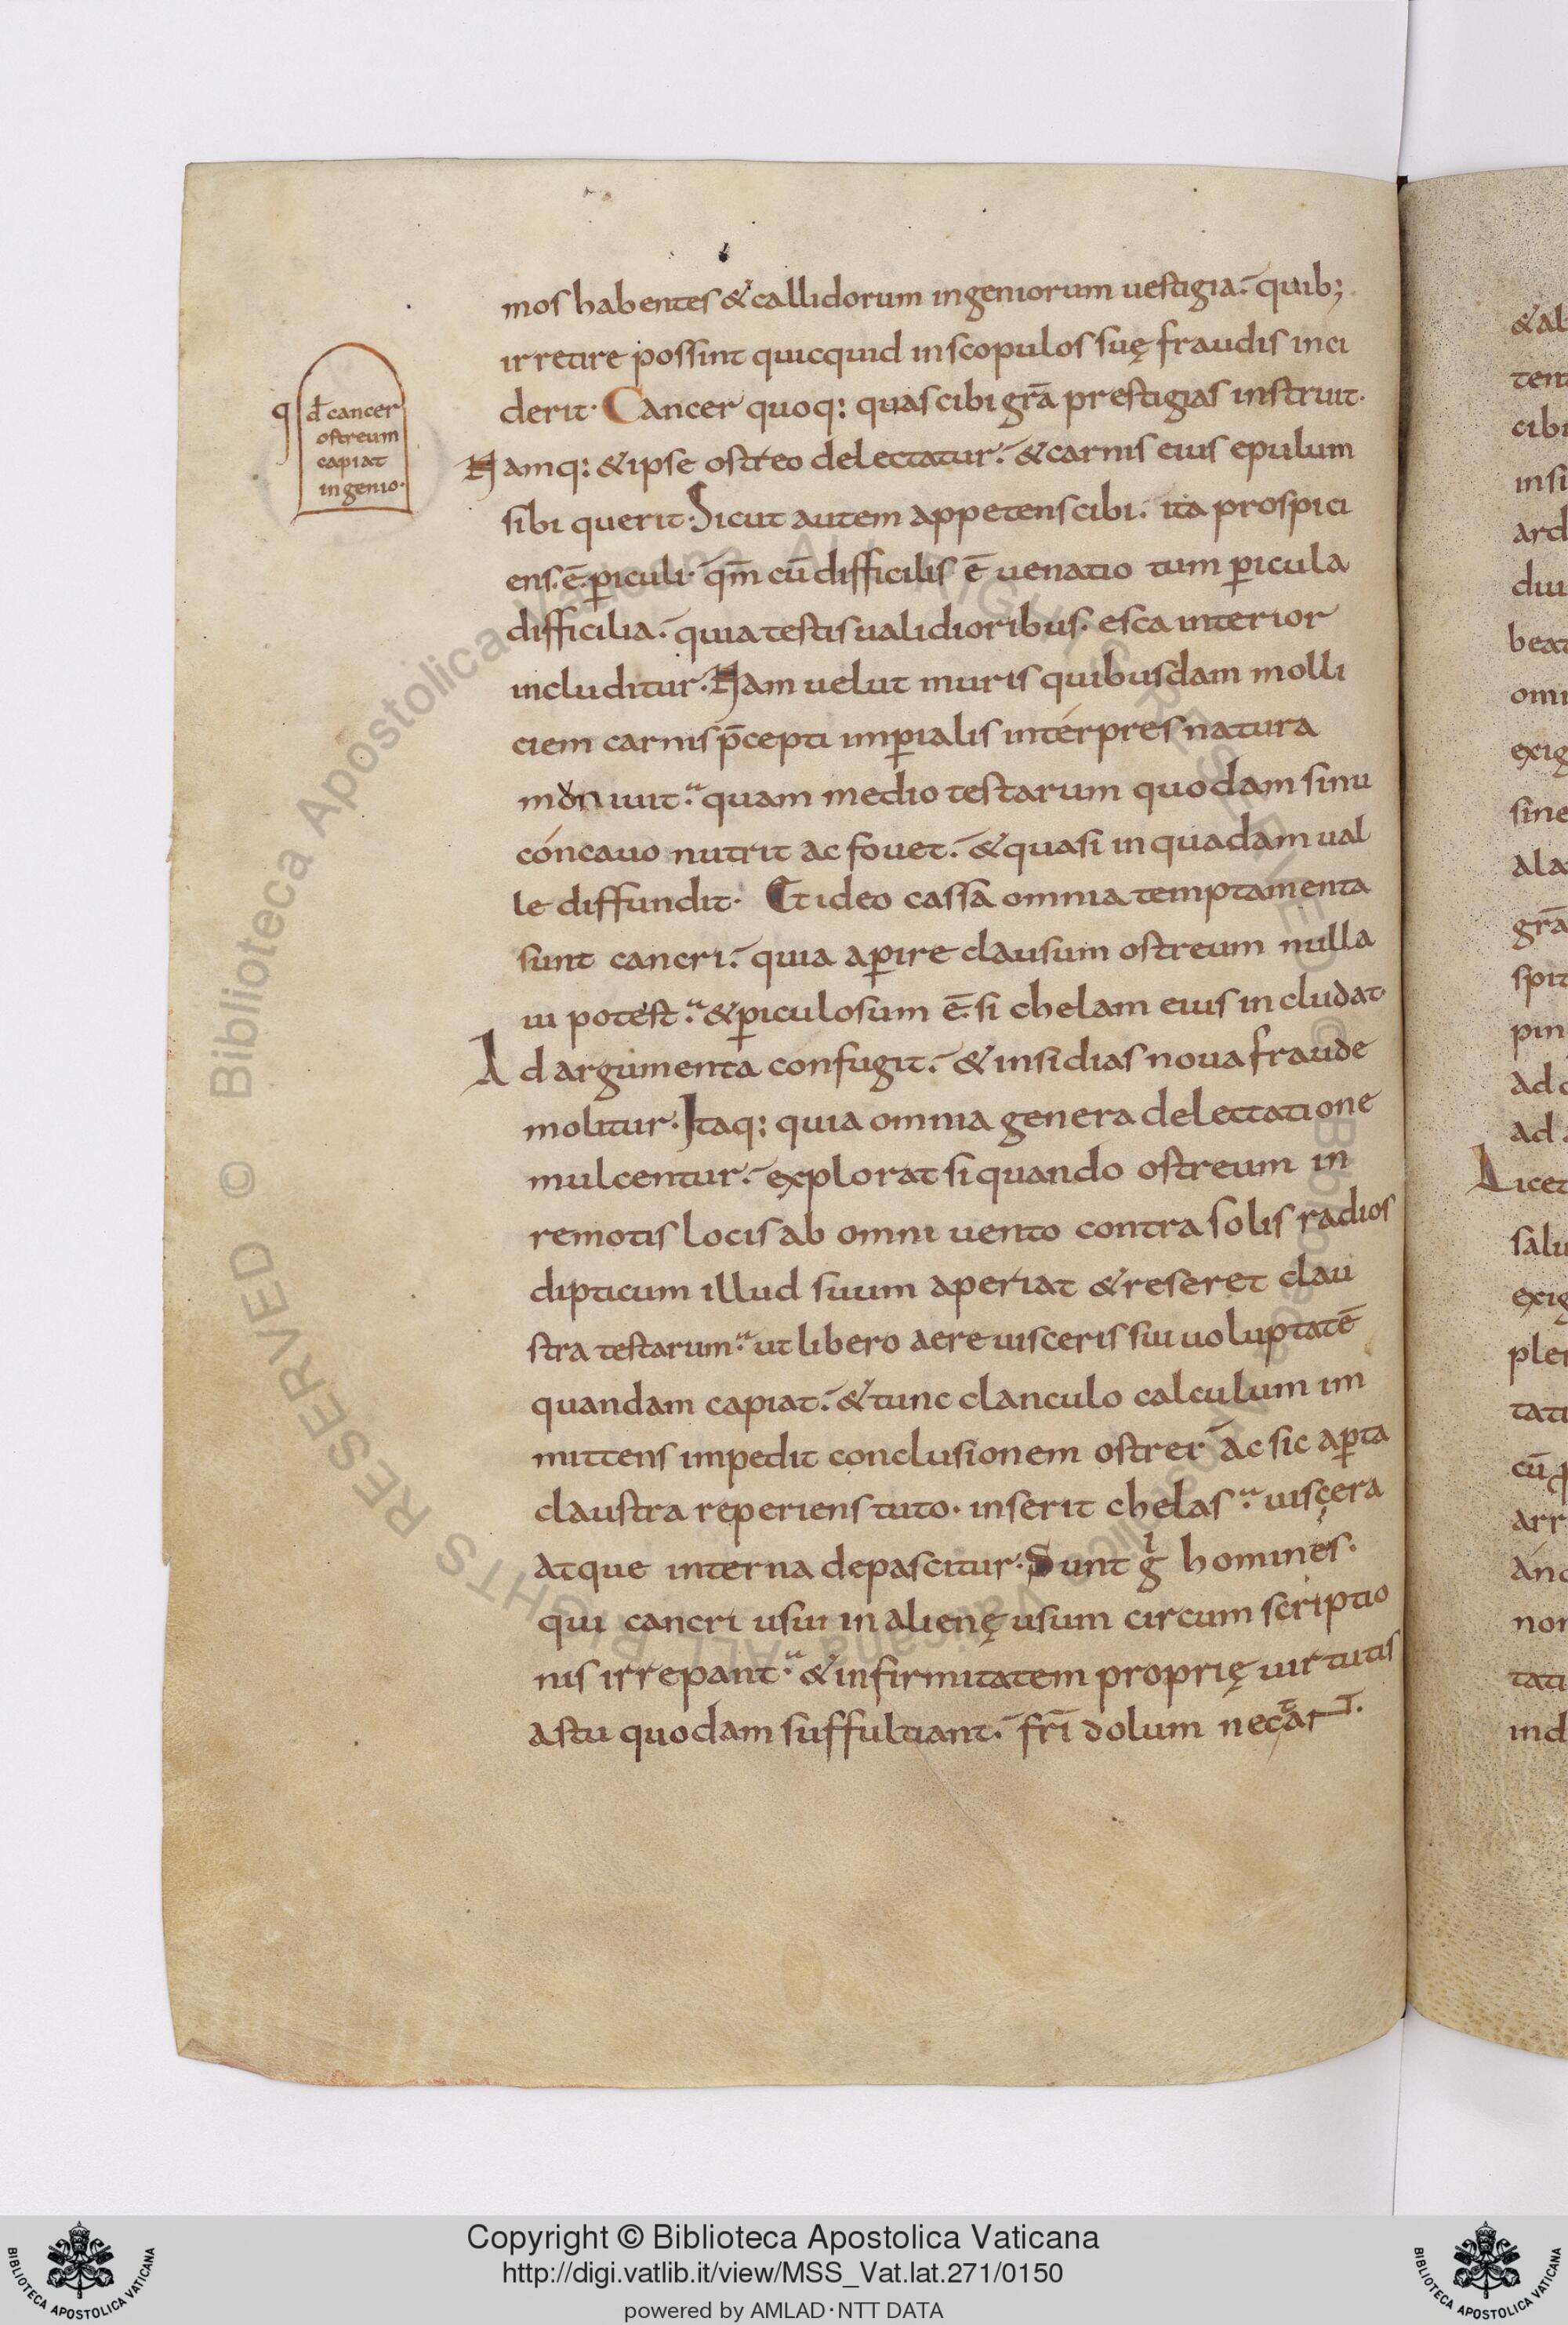 mos habentes & callidorum ingeniorum uestigia. quib;
irretire possint quicquid inscopulos suę fraudis inci
derit. Cancer quoq: quas cibi grā prestigias instruit.
q d̄ cancer
ostreum
capiat
ingenio.
Namq: & ipse ostreo delectatur. & carnis eius epulum
sibi querit. Sicut autem appetens cibi. ita prospici
ens. ē. p̱iculi. qm̄ cū difficilis ē uenatio tum p̱icula
difficilia. quia testis ualidioribus. esca interior
includitur. Nam uelut muris quibusdam molli
ciem carnis p̄cepti imp̱ialis intérpres natura
muit. quam medio testarum quodam sinu
cóncauo nutrit ac fouet. & quasi in quadam ual
le diffundit. Et ideo cassā omnia temptamenta
sunt cancri. quia ap̱ire clausum ostreum nulla
ui potest. & p̱iculosum ē. si chelam eius includat.
Ad argumenta confugit. & insidias noua fraude
molitur. Itaq: quia omnia genera delectatione
mulcentur. explorat siquando ostreum in
remotis locis ab omni uento contra solis radios
dipticum illud suum aperiat & reseret clau
stra testarum. ut libero aere uisceris sui uoluptatē
quandam capiat. & tunc clanculo calculum im
mittens impedit conclusionem ostrei ac sic ap̱ta
claustra reperiens tuto. inserit chelas. uisçera
atque interna depascitur. Sunt g̊ homines.
qui cancri usui in alienę usum circumscriptio
nis irrepant. & infirmitatem proprię uirtutis
astu quodam suffultiant. fri dolum
&al
cibi
insi
diu
beat
omi
exig
sine
ala
grā
spit
pin
ad
Licet
salu
exig
plen
tati
cū
arr
non
tati
ind
© Biblioteca Apostolica Vaticana ALL RIGHTS RESERVED © Biblioteca Apostolica Vaticana ALL RIGHTS RESERVED
Copyright © Biblioteca Apostolica Vaticana
http://digi.vatlib.it/view/MSS_Vat.lat.271/0150
powered by AMLAD·NTT DATA
BIBLIOTECA APOSTOLICA VATICANA
BIBLIOTECA APOSTOLICA VATICANA